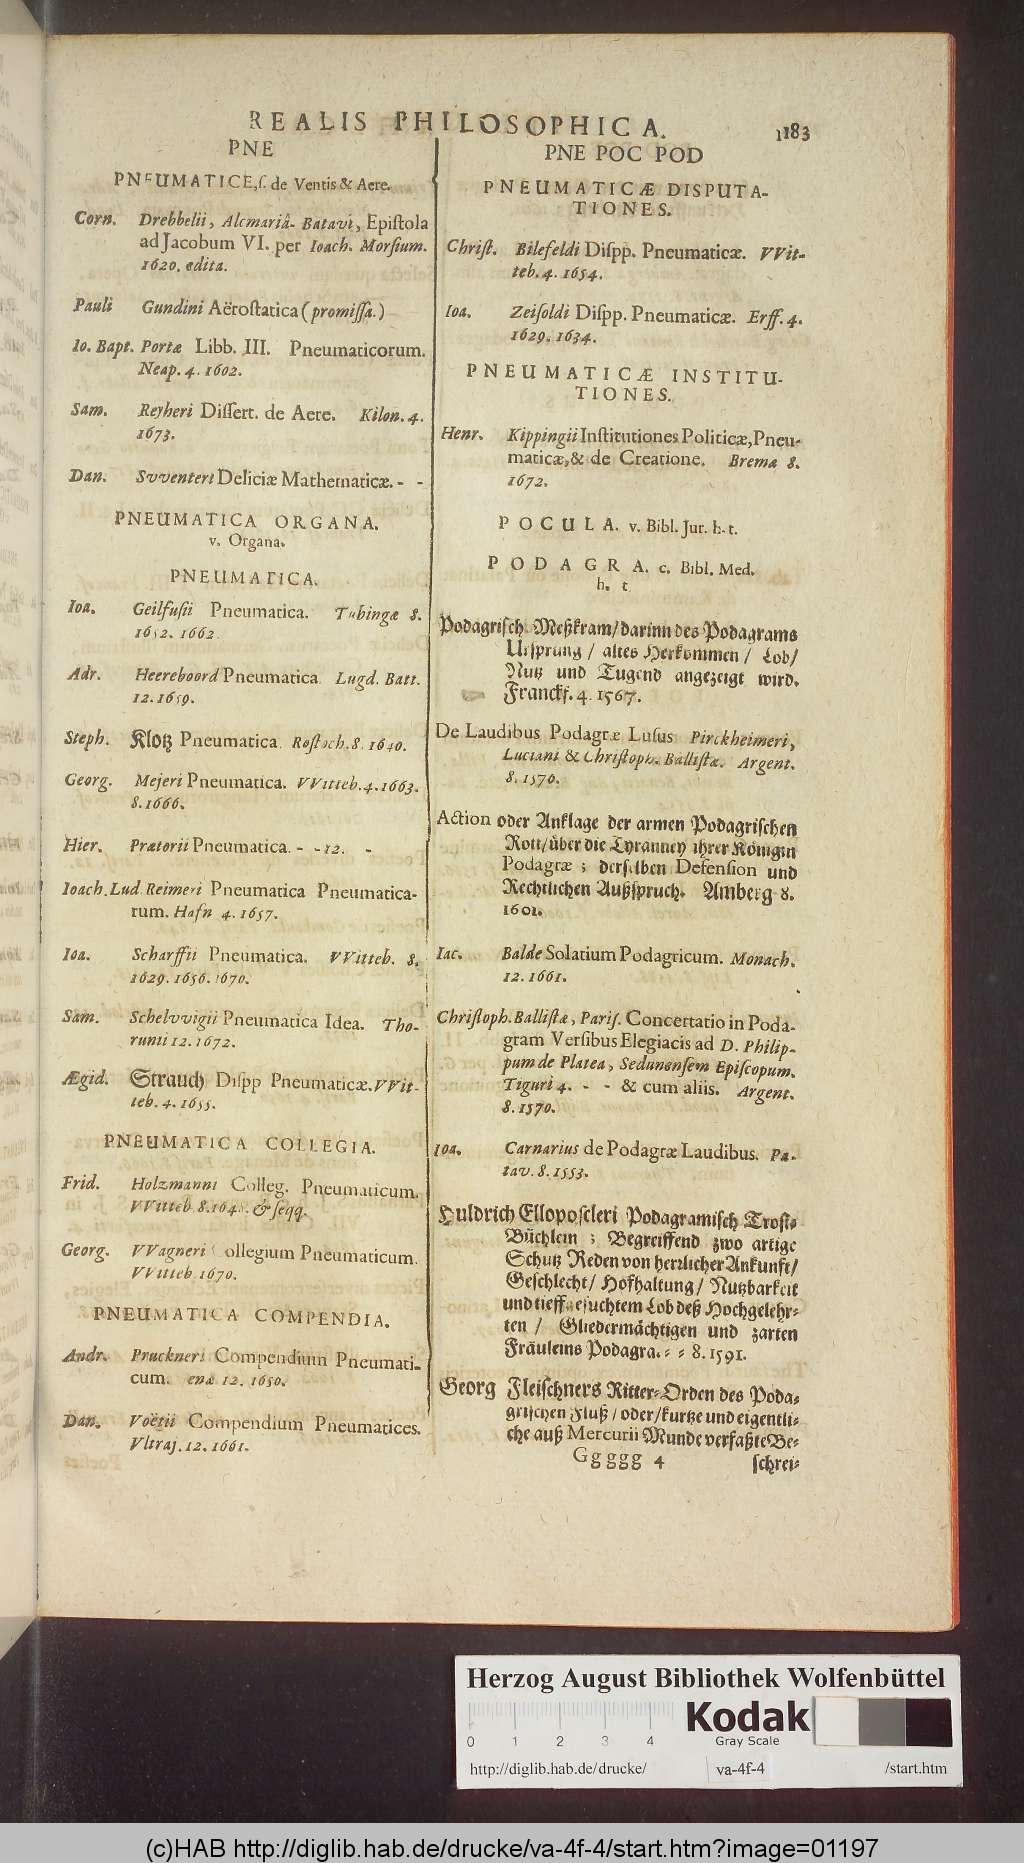 REALIS PHILOSOPHICA.
1183
PNE
PNEUMATICE, ſ. de Ventis & Aere.
Corn. Drebbelii, Alcmariâ-Batavi, Epiſtola
ad Jacobum VI. per Ioach. Morſium.
1620. edita.
Pauli Gundini Aëroſtatica (promiſſa.)
Io. Bapt. Portæ Libb. III. Pneumaticorum.
Neap. 4. 1602.
Sam. Reyheri Diſſert. de Aere. Kilon. 4.
1673.
Dan. Svventeri Deliciæ Mathematicæ. - -
PNEUMATICA ORGANA.
v. Organa.
PNEUMATICA.
Ioa. Geilfuſii Pneumatica. Tubingæ 8.
1652. 1662.
Adr. Heereboord Pneumatica. Lugd. Batt.
12. 1659.
Steph. Klotz Pneumatica. Roſtoch. 8. 1640.
Georg. Mejeri Pneumatica. VVitteb. 4. 1663.
8. 1666.
Hier. Prætorii Pneumatica. - - 12. -
Ioach. Lud. Reimeri Pneumatica Pneumatica-
rum. Hafn 4. 1657.
Ioa. Scharffii Pneumatica. VVitteb. 8.
1629. 1656. 1670.
Sam. Schelvvigii Pneumatica Idea. Tho-
runii 12. 1672.
Ægid. Strauch Diſpp Pneumaticæ. VVit-
teb. 4. 1655.
PNEUMATICA COLLEGIA.
Frid. Holzmanni Colleg. Pneumaticum.
VVitteb. 8. & ſeqq.
Georg. VVagneri Collegium Pneumaticum.
VVitteb. 1670.
PNEUMATICA COMPENDIA.
Andr. Pruckneri Compendium Pneumati-
cum. enæ 12. 1650.
Dan. Voëtii Compendium Pneumatices.
Vltraj. 12. 1661.
PNE POC POD
PNEUMATICÆ DISPUTA-
TIONES.
Chriſt. Bilefeldi Diſpp. Pneumaticæ. VVit-
teb. 4. 1654.
Ioa. Zeiſoldi Diſpp. Pneumaticæ. Erff. 4.
1629. 1634.
PNEUMATICÆ INSTITU-
TIONES.
Henr. Kippingii Inſtitutiones Politicæ, Pneu-
maticæ, & de Creatione. Bremæ 8.
1672.
POCULA. v. Bibl. Jur. h. t.
PODAGRA. c. Bibl. Med.
h. t
Podagriſch Meßkram/ darinn des Podagrams
Urſprung / altes Herkommen / Lob/
Nutz und Tugend angezeigt wird.
Franckf. 4. 1567.
De Laudibus Podagræ Luſus Pirckheimeri,
Luciani & Chriſtoph. Balliſtæ. Argent.
8. 1570.
Action oder Anklage der armen Podagriſchen
Rott/ über die Tyranney ihrer Königin
Podagræ ; derſelben Defenſion und
Rechtlichen Außſpruch. Amberg 8.
1601.
Iac. Balde Solatium Podagricum. Monach.
12. 1661.
Chriſtoph. Balliſtæ, Pariſ. Concertatio in Poda-
gram Verſibus Elegiacis ad D. Philip-
pum de Platea, Sedunenſem Epiſcopum.
Tiguri 4. - - & cum aliis. Argent.
8. 1570.
Ioa. Carnarius de Podagræ Laudibus. Pa-
tav. 8. 1553.
Huldrich Ellopoſcleri Podagramiſch Troſt-
Büchlein ; Begreiffend zwo artige
Schutz Reden von herrlicher Ankunft/
Geſchlecht/ Hofhaltung/ Nutzbarkeit
und tieffgeſuchtem Lob deß Hochgelehr-
ten / Gliedermächtigen und zarten
Fräuleins Podagra. - - 8. 1591.
Georg Fleiſchners Ritter-Orden des Poda-
griſchen Fluß / oder/ kurtze und eigentli-
che auß Mercurii Munde verfaßte Be-
Ggggg 4
ſchrei-
Herzog August Bibliothek Wolfenbüttel
0 1 2 3 4
Kodak
Gray Scale
http://diglib.hab.de/drucke/ va-4f-4 /start.htm
(c)HAB http://diglib.hab.de/drucke/va-4f-4/start.htm?image=01197